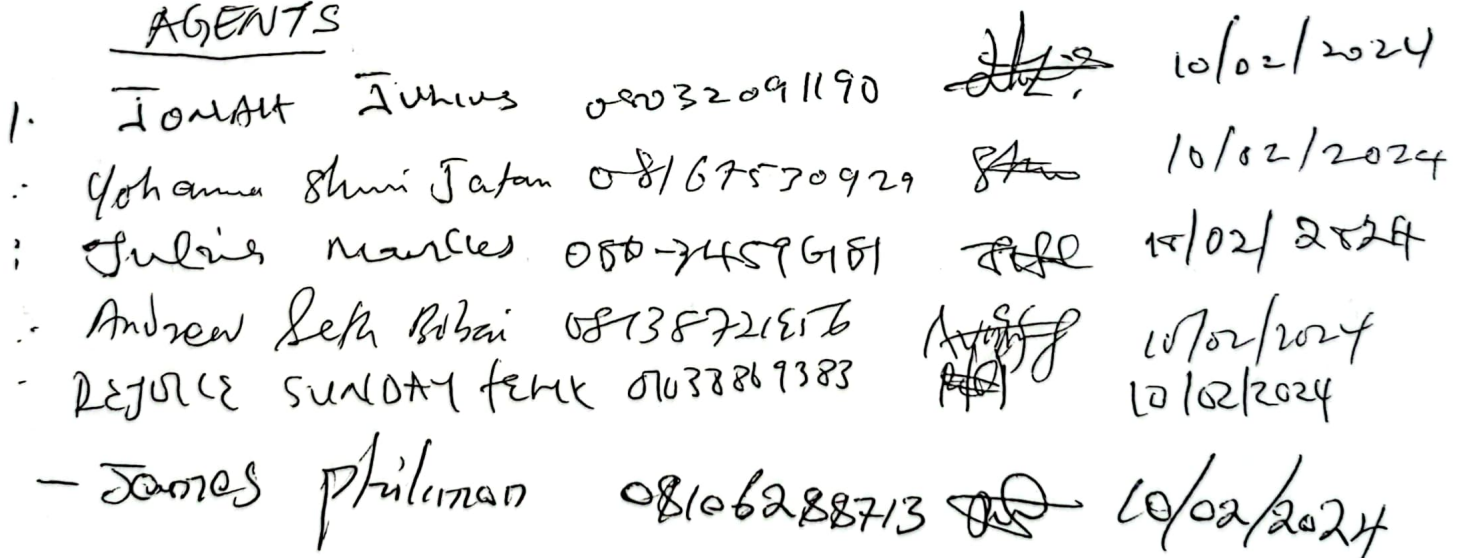 AGENTS
1. JONAH Julius 08032091190 10/02/2024
: Yohanna Shuni Jatan 08167530929 10/02/2024
: Julius Marcus 080-34596181 10/02/2024
: Andrew Seth Bobai 10/02/2024
- REJOICE SUNDAY FELIX 07038869383 10/02/2024
- James Philimon 08106288713 10/02/2024